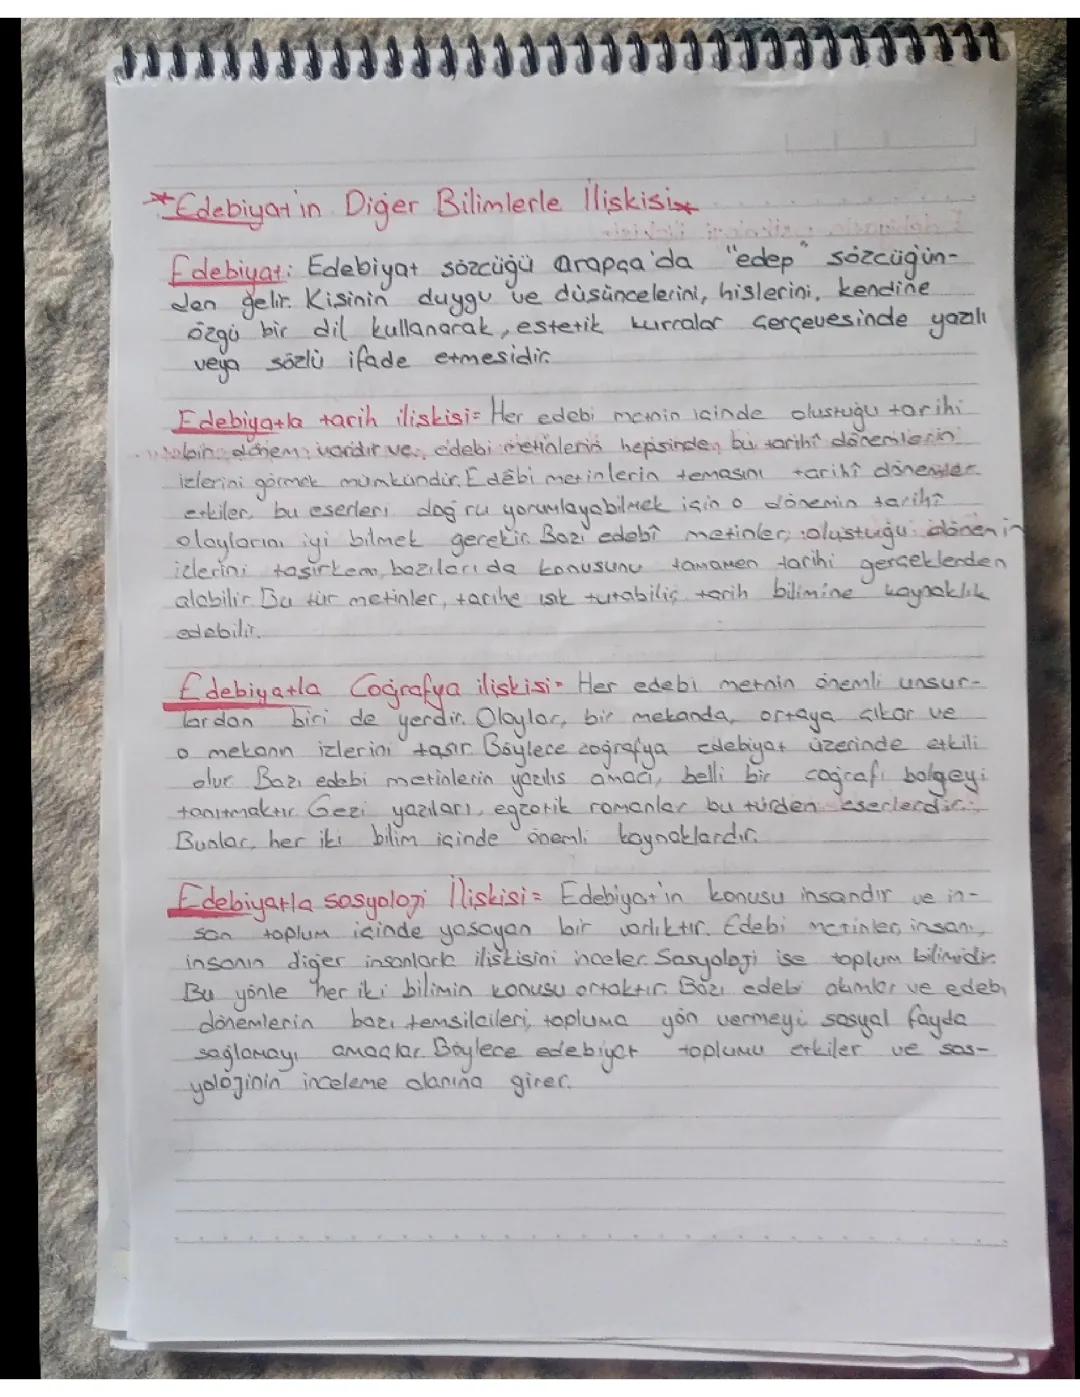 *Edebiyat'ın Diğer Bilimlerle İlişkisi*
Edebiyat: Edebiyat sözcüğü arapça'da "edep" sözcüğün-
den gelir. Kişinin duygu ve düşüncelerini, hislerini, kendine
özgü bir dil kullanarak, estetik kurralar çerçevesinde yazılı
veya sözlü ifade etmesidir.
Edebiyatla tarih ilişkisi= Her edebi metnin içinde oluştuğu tarihi
bir dönem vardır ve, edebi metinlerin hepsinde, bu tarihî dönemlerin
izlerini görmek mümkündür. Edebi metinlerin temasını tarihî dönemler
etkiler, bu eserleri doğru yorumlayabilmek için o dönemin tarihî
olaylarını iyi bilmek gerekir. Bazı edebî metinler, oluştuğu dönemin
izlerini taşırken, bazıları da konusunu tamamen tarihi gerçeklerden
alabilir. Bu tür metinler, tarihe ışık tutabilir, tarih bilimine kaynaklık
edebilir.
Edebiyatla Coğrafya ilişkisi= Her edebi metnin önemli unsur-
lardan biri de yerdir. Olaylar, bir mekanda, ortaya çıkar ve
o mekanın izlerini taşır. Böylece coğrafya edebiyat üzerinde etkili
olur. Bazı edebi metinlerin yazılış amacı, belli bir coğrafi bölgeyi
tanıtmaktır. Gezi yazıları, egzotik romanlar bu türden eserlerdir.
Bunlar, her iki bilim içinde önemli kaynaklardır.
Edebiyatla sosyoloji İlişkisi= Edebiyat'ın konusu insandır ve in-
san toplum içinde yaşayan bir varlıktır. Edebi metinler, insanı,
insanın diğer insanlarla ilişkisini inceler. Sosyoloji ise toplum bilimidir.
Bu yönle her iki bilimin konusu ortaktır. Bazı edebi akımlar ve edebi
dönemlerin bazı temsilcileri, topluma yön vermeyi, sosyal fayda
sağlamayı amaçlar. Böylece edebiyat toplumu etkiler ve sos-
yolojinin inceleme alanına girer.